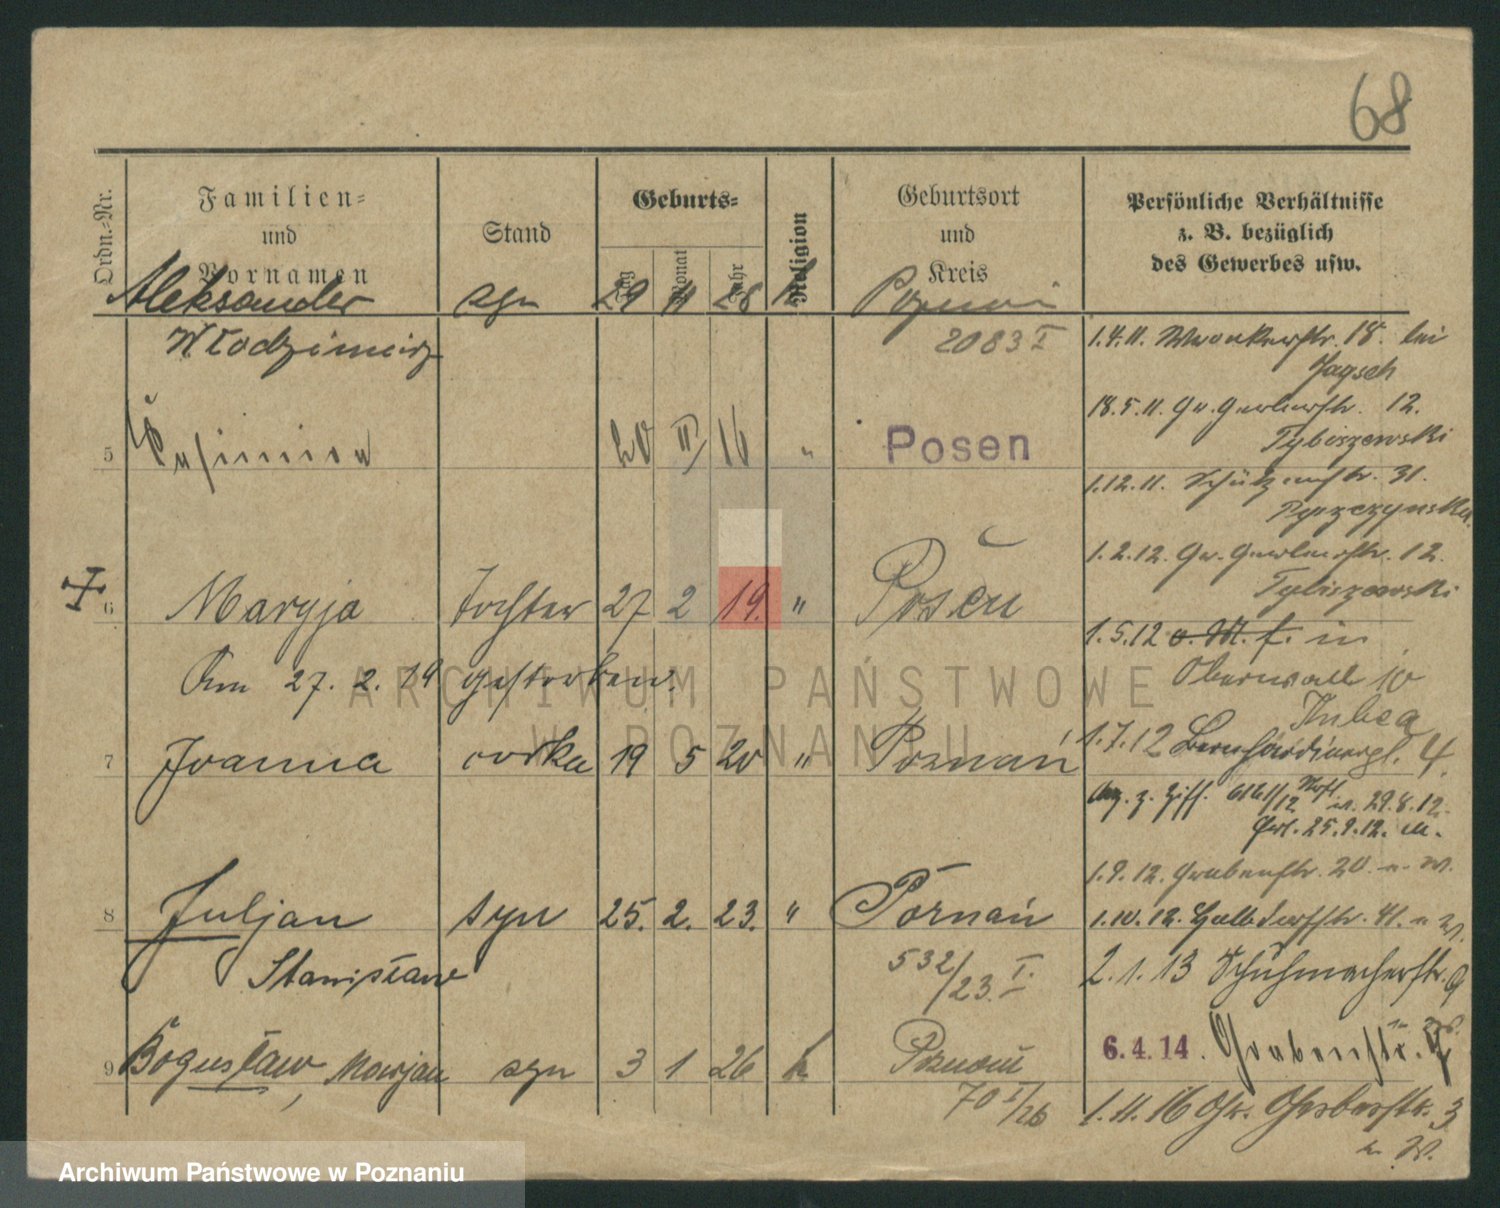 68
Ordn.-Nr.
Familien-
und
Vornamen
Stand
Geburts-
Tag
Monat
Jahr
Religion
Geburtsort
und
Kreis
Persönliche Verhältnisse
z. B. bezüglich
des Gewerbes usw.
Aleksander syn 29 11 28 k Poznań
Włodzimierz 2083 I
1.4.11. Wronkerstr. 18. bei
Jagsch
18.5.11. Gr. Gerberstr. 12.
Tybiszewski
5 20 II 16 " Posen
1.12.11. Schützenstr. 31.
1.2.12. Gr. Gerberstr. 12.
Tybiszewski
6 Maryja Tochter 27 2 19. " Posen
1.5.12 v. M. f. in
Oberwall 10
Am 27. 2. 19 gestorben.
7 Joanna córka 19 5 20 " Poznań
1.7.12 Bernhardinerpl. 4.
Anz. z. Ziff. 6161/12 v. 29.8.12.
25.9.12.
1.9.12. Grabenstr. 20 n. W.
8 Juljan syn 25. 2. 23. " Poznań
1.10.12. Halbdorfstr. 41. n W.
Stanisław 532/23. I.
2.1.13 Schuhmacherstr. 9
6.4.14. Grabenstr.
9 Bogusław, Marjan syn 3 1 26 k Poznań
70 I/26
1.11.16 Gr. Gerberstr. 3
n. W.
ARCHIWUM PAŃSTWOWE
W POZNANIU
Archiwum Państwowe w Poznaniu